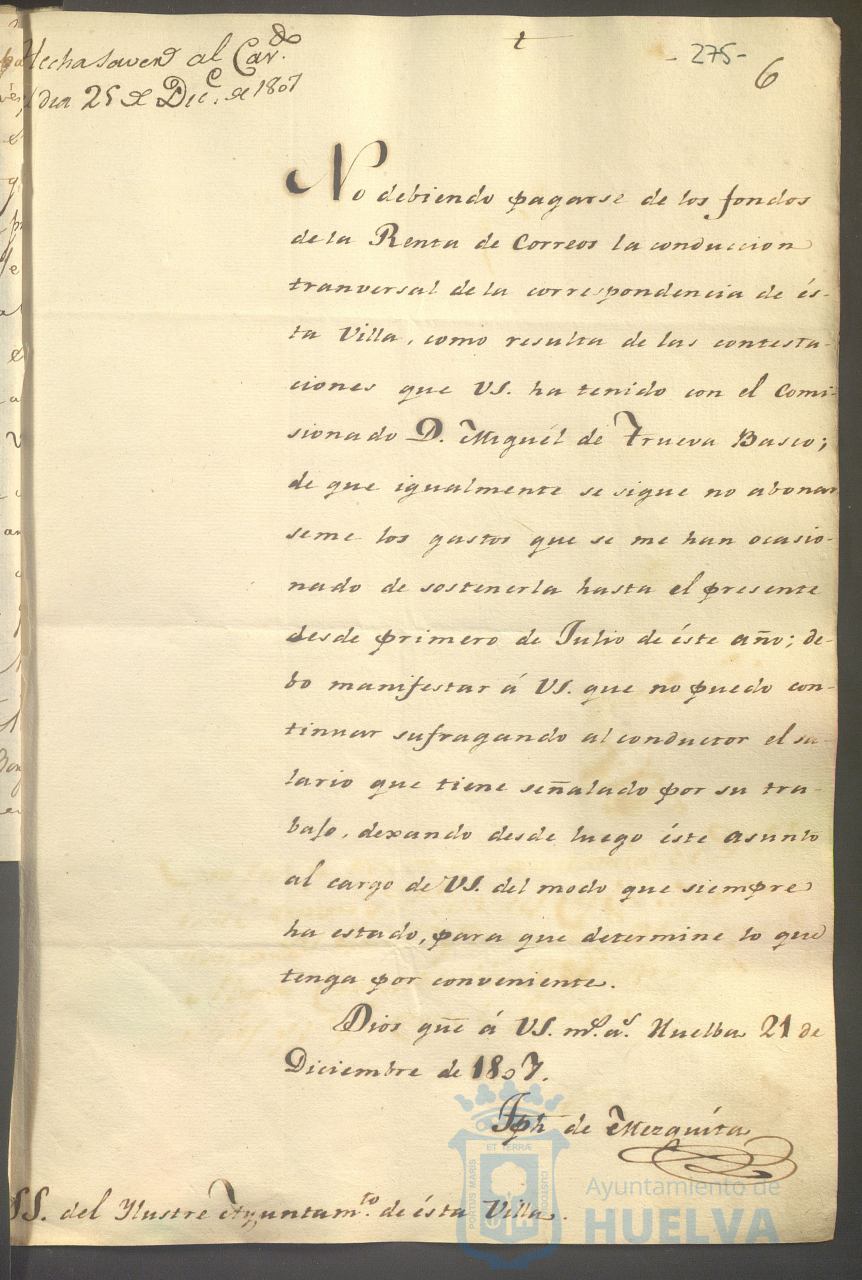 Hecha saver al Cav.do
el dia 25 de Dic.e de 1807
t
- 275 -
6
No debiendo pagarse de los fondos
de la Renta de Correos la conduccion
tranversal de la correspondencia de és-
ta Villa, como resulta de las contesta-
ciones que VS. ha tenido con el Comi-
sionado D. Miguél de Trueva Basco;
de que igualmente se sigue no abonar
seme los gastos que se me han ocasio-
nado de sostenerla hasta el presente
desde primero de Julio de éste año; de-
bo manifestar á VS. que no puedo con-
tinuar sufragando al conductor el sa-
lario que tiene señalado por su tra-
bajo, dexando desde luego éste asunto
al cargo de VS. del modo que siempre
ha estado, para que determine lo que
tenga por conveniente.
Dios gue á VS. m.s a.s Huelba 21 de
Diciembre de 1807.
Jph de Mezquita
SS. del Ylustre Ayuntam.to de ésta Villa.
ET TERRÆ
PORTUS MARIS
CUSTODIA
Ayuntamiento de
HUELVA